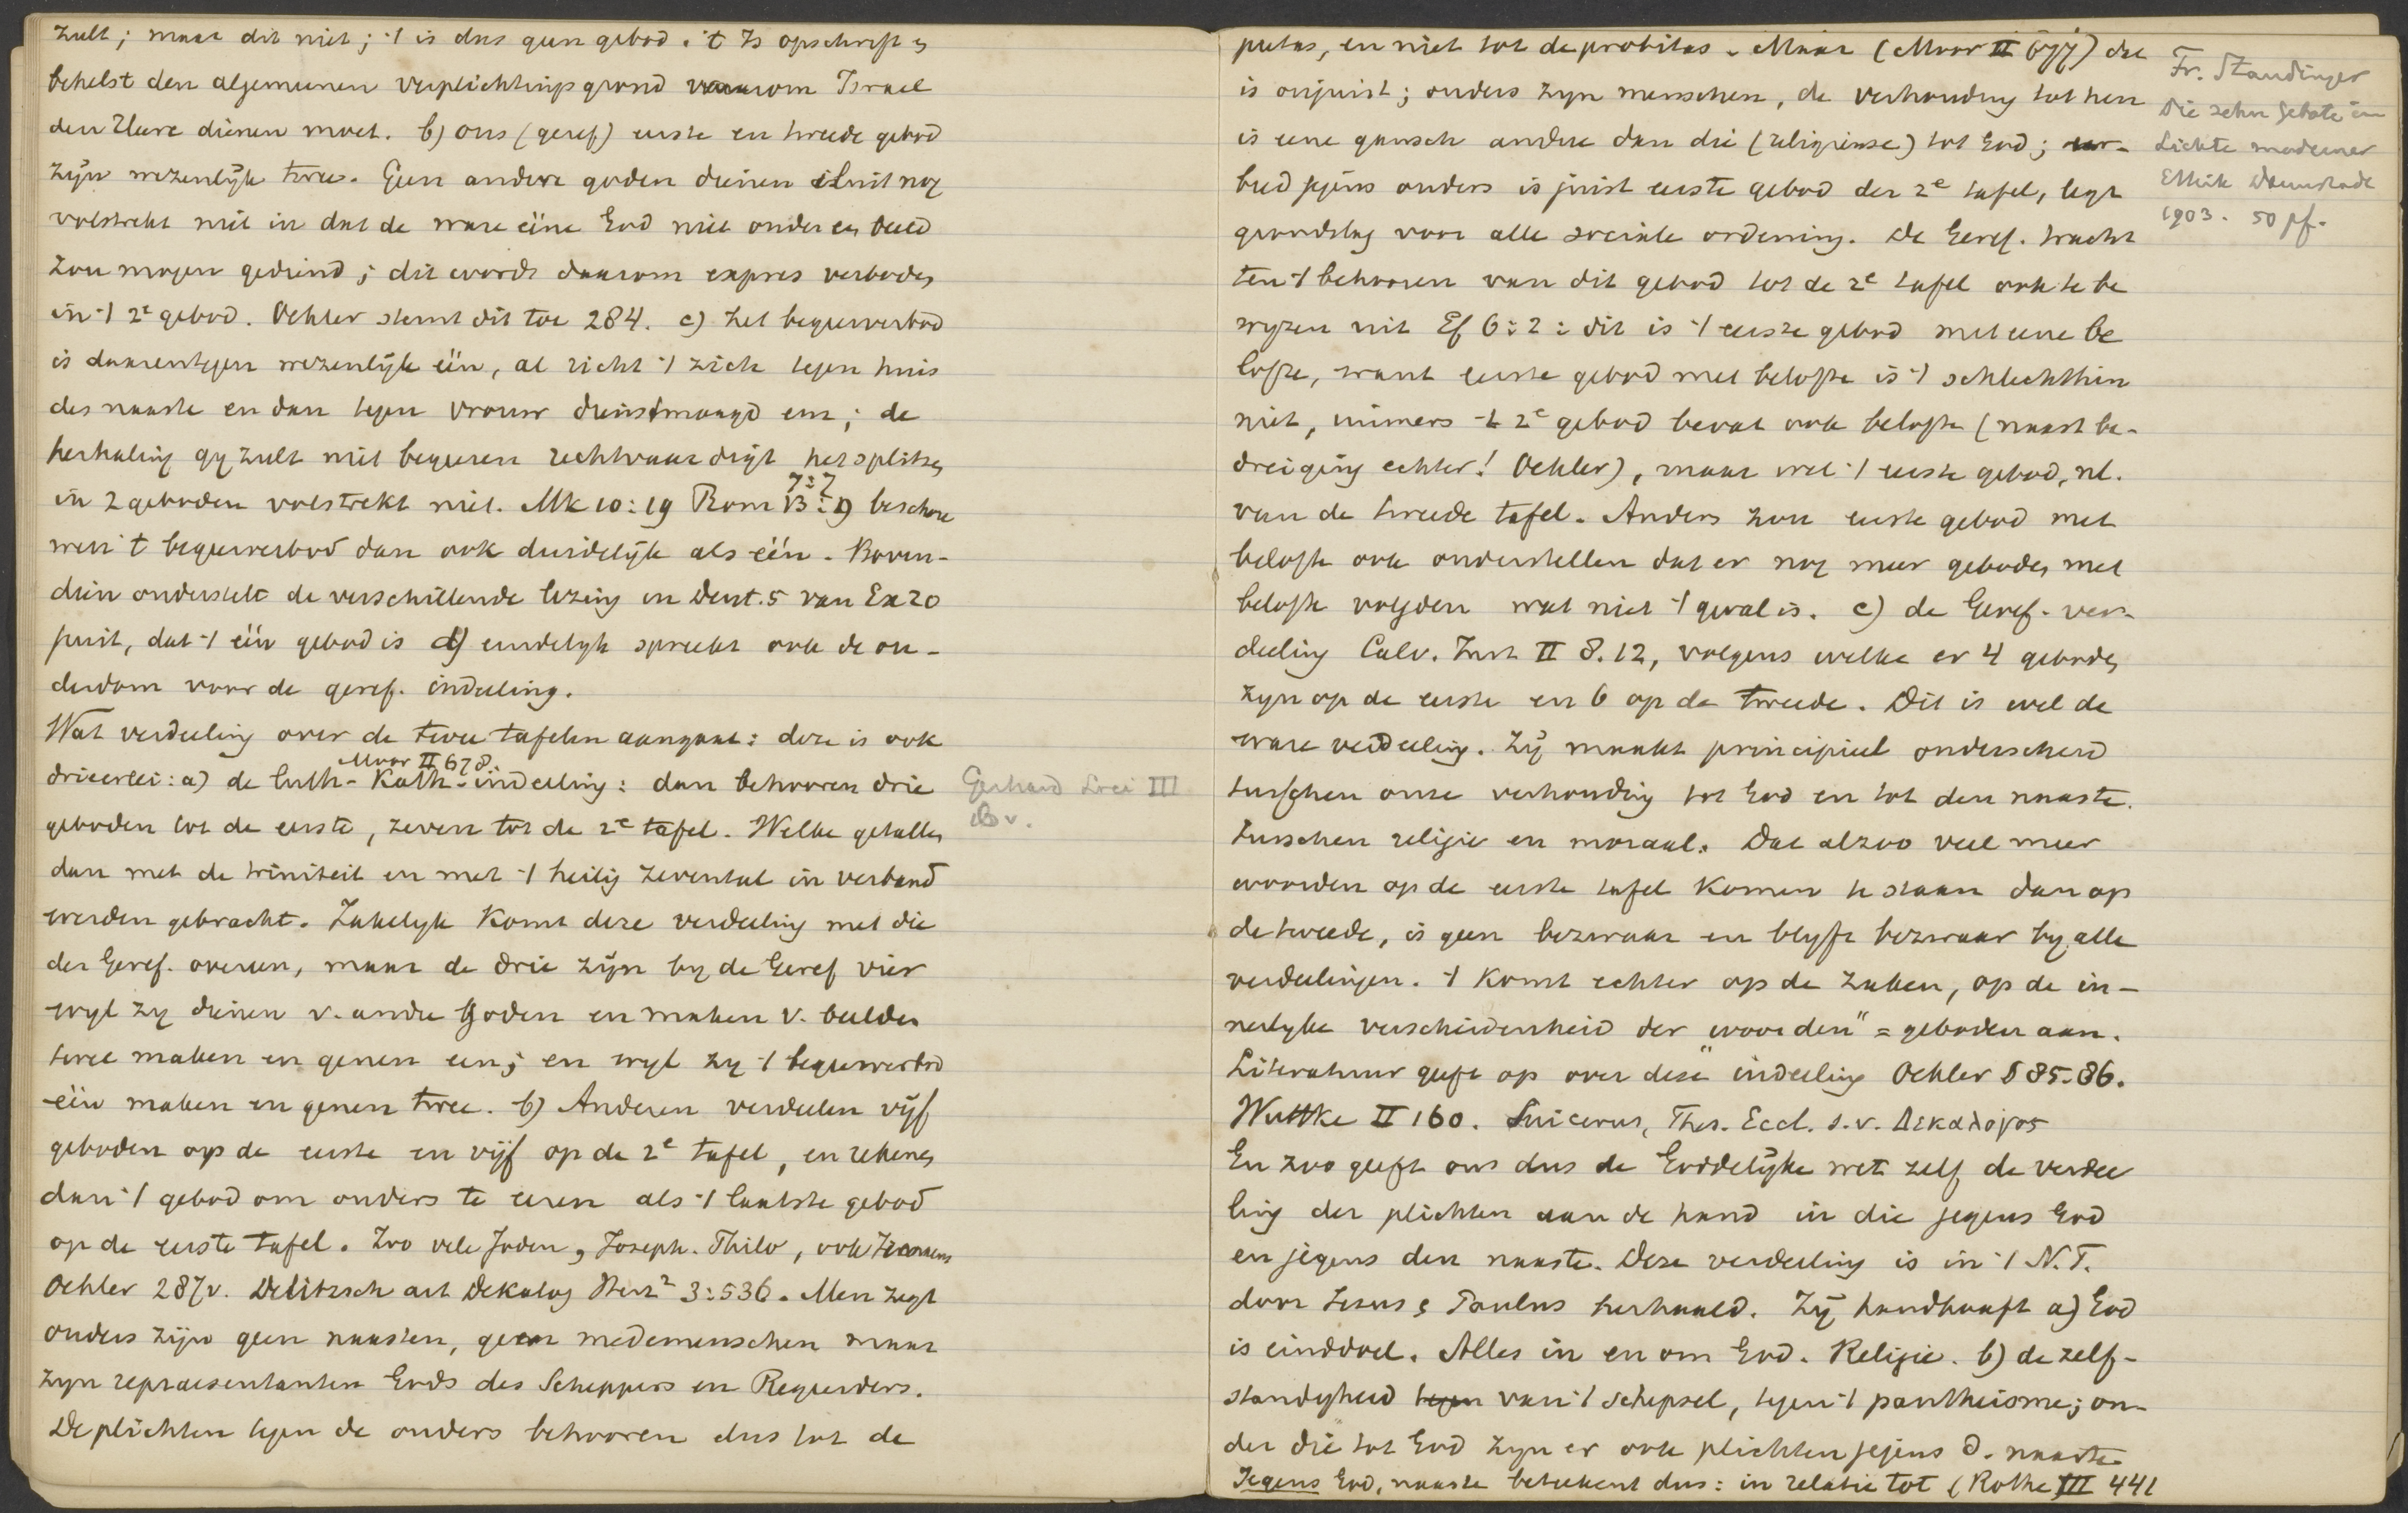 zult; maar dit niet; 't is dus geen gebod. 't Is opschrift &
behelst den algemeenen verplichtingsgrond waarom Israel
den Heere dienen moet. b) ons (geref) eerste en tweede gebod
zijn wezenlijk twee. Geen andere goden dienen sluit nog
volstrekt niet in dat de ware ééne God niet onder een beeld
zou mogen gediend; dit wordt daarom expres verboden
in 't 2e gebod. Oehler stemt dit toe 284. c) het begeerverbod
is daarentegen wezenlijk één, al richt 't zich tegen huis
des naaste en dan tegen vrouw dienstmaagd enz; de
herhaling gy zult niet begeeren rechtvaardigt het splitsen
in 2 geboden volstrekt niet. Mk 10:19 Rom 7:7 13:9 beschou
wen 't begeerverbod dan ook duidelijk als één. Boven-
dien onderstelt de verschillende lezing in Deut. 5 van Ex 20
juist, dat 't één gebod is d) eindelyk spreekt ook de ou-
derdom voor de geref. indeeling.
Wat verdeeling over de twee tafelen aangaat: deze is ook
drieërlei: a) de luth-Kath-indeeling: dan behooren drie
Moor II 678.
geboden tot de eerste, zeven tot de 2e tafel. Welke getallen
dan met de triniteit en met 't heilig zevental in verband
werden gebracht. Zakelyk komt deze verdeeling met die
der Geref. overeen, maar de drie zijn by de Geref vier
wyl zy dienen v. andre goden en maken v. beelden
twee maken en genen een; en wyl zy 't begeerverbod
één maken en genen twee. b) Anderen verdeelen vijf
geboden op de eerste en vijf op de 2e tafel, en rekenen
dan 't gebod om ouders te eeren als 't laatste gebod
op de eerste tafel. Zoo vele Joden, Joseph. Philo, ook
Oehler 287v. Delitzsch art Dekalog Herz2 3:536. Men zegt
ouders zijn geen naasten, geen medemenschen maar
zyn repraesentanten Gods des Scheppers en Regeerders.
De plichten tegen de ouders behooren dus tot de
Gerhard Loci III
pietas, en niet tot de probitas. Maar (Moor II 677) dat
is onjuist; ouders zyn menschen, de verhouding tot hen
is eene gansch andere dan die (religieuse) tot God; eer-
bied jegens ouders is juist eerste gebod der 2e tafel, legt
grondslag voor alle sociale ordening. De Geref. tracht
ten 't behooren van dit gebod tot de 2e tafel ook te be
wyzen uit Ef 6:2: dit is 't eerste gebod met eene be
lofte, want eerste gebod met belofte is 't schlechthin
niet, immers 't 2e gebod bevat ook belofte (naast be-
dreiging echter! Oehler), maar wel 't eerste gebod, nl.
van de tweede tafel. Anders zou eerste gebod met
belofte ook onderstellen dat er nog meer geboden met
belofte volgden wat niet 't geval is. c) de Geref. ver-
deeling Calv. Inst II 8.12, volgens welke er 4 geboden
zyn op de eerste en 6 op de tweede. Dit is wel de
ware verdeeling. Zij maakt principieel onderscheid
tusschen onze verhouding tot God en tot den naaste.
tusschen religie en moraal. Dat alzoo veel meer
woorden op de eerste tafel komen te staan dan op
de tweede, is geen bezwaar en blyft bezwaar by alle
verdeelingen. 't Komt echter op de zaken, op de in-
nerlyke verscheidenheid der „woorden” = geboden aan.
Literatuur geeft op over deze indeeling Oehler § 85-86.
Wuttke II 160. Suicerus, Thes. Eccl. s.v. Δεκαλογος
En zoo geeft ons dus de Goddelijke wet zelf de verdee
ling der plichten aan de hand in die jegens God
en jegens den naaste. Deze verdeeling is in 't N.T.
door Jezus & Paulus herhaald. Zij handhaaft a) God
is einddoel. Alles in en om God. Religie. b) de zelf-
standigheid tegen van 't schepsel, tegen 't pantheisme; on-
der die tot God zyn er ook plichten jegens d. naaste
Jegens God, naaste beteekent dus: in relatie tot (Rothe III 441
Fr. Staudinger
Die zehn Gebote im
Lichte moderner
Ethik Darmstadt
1903. 50 pf.